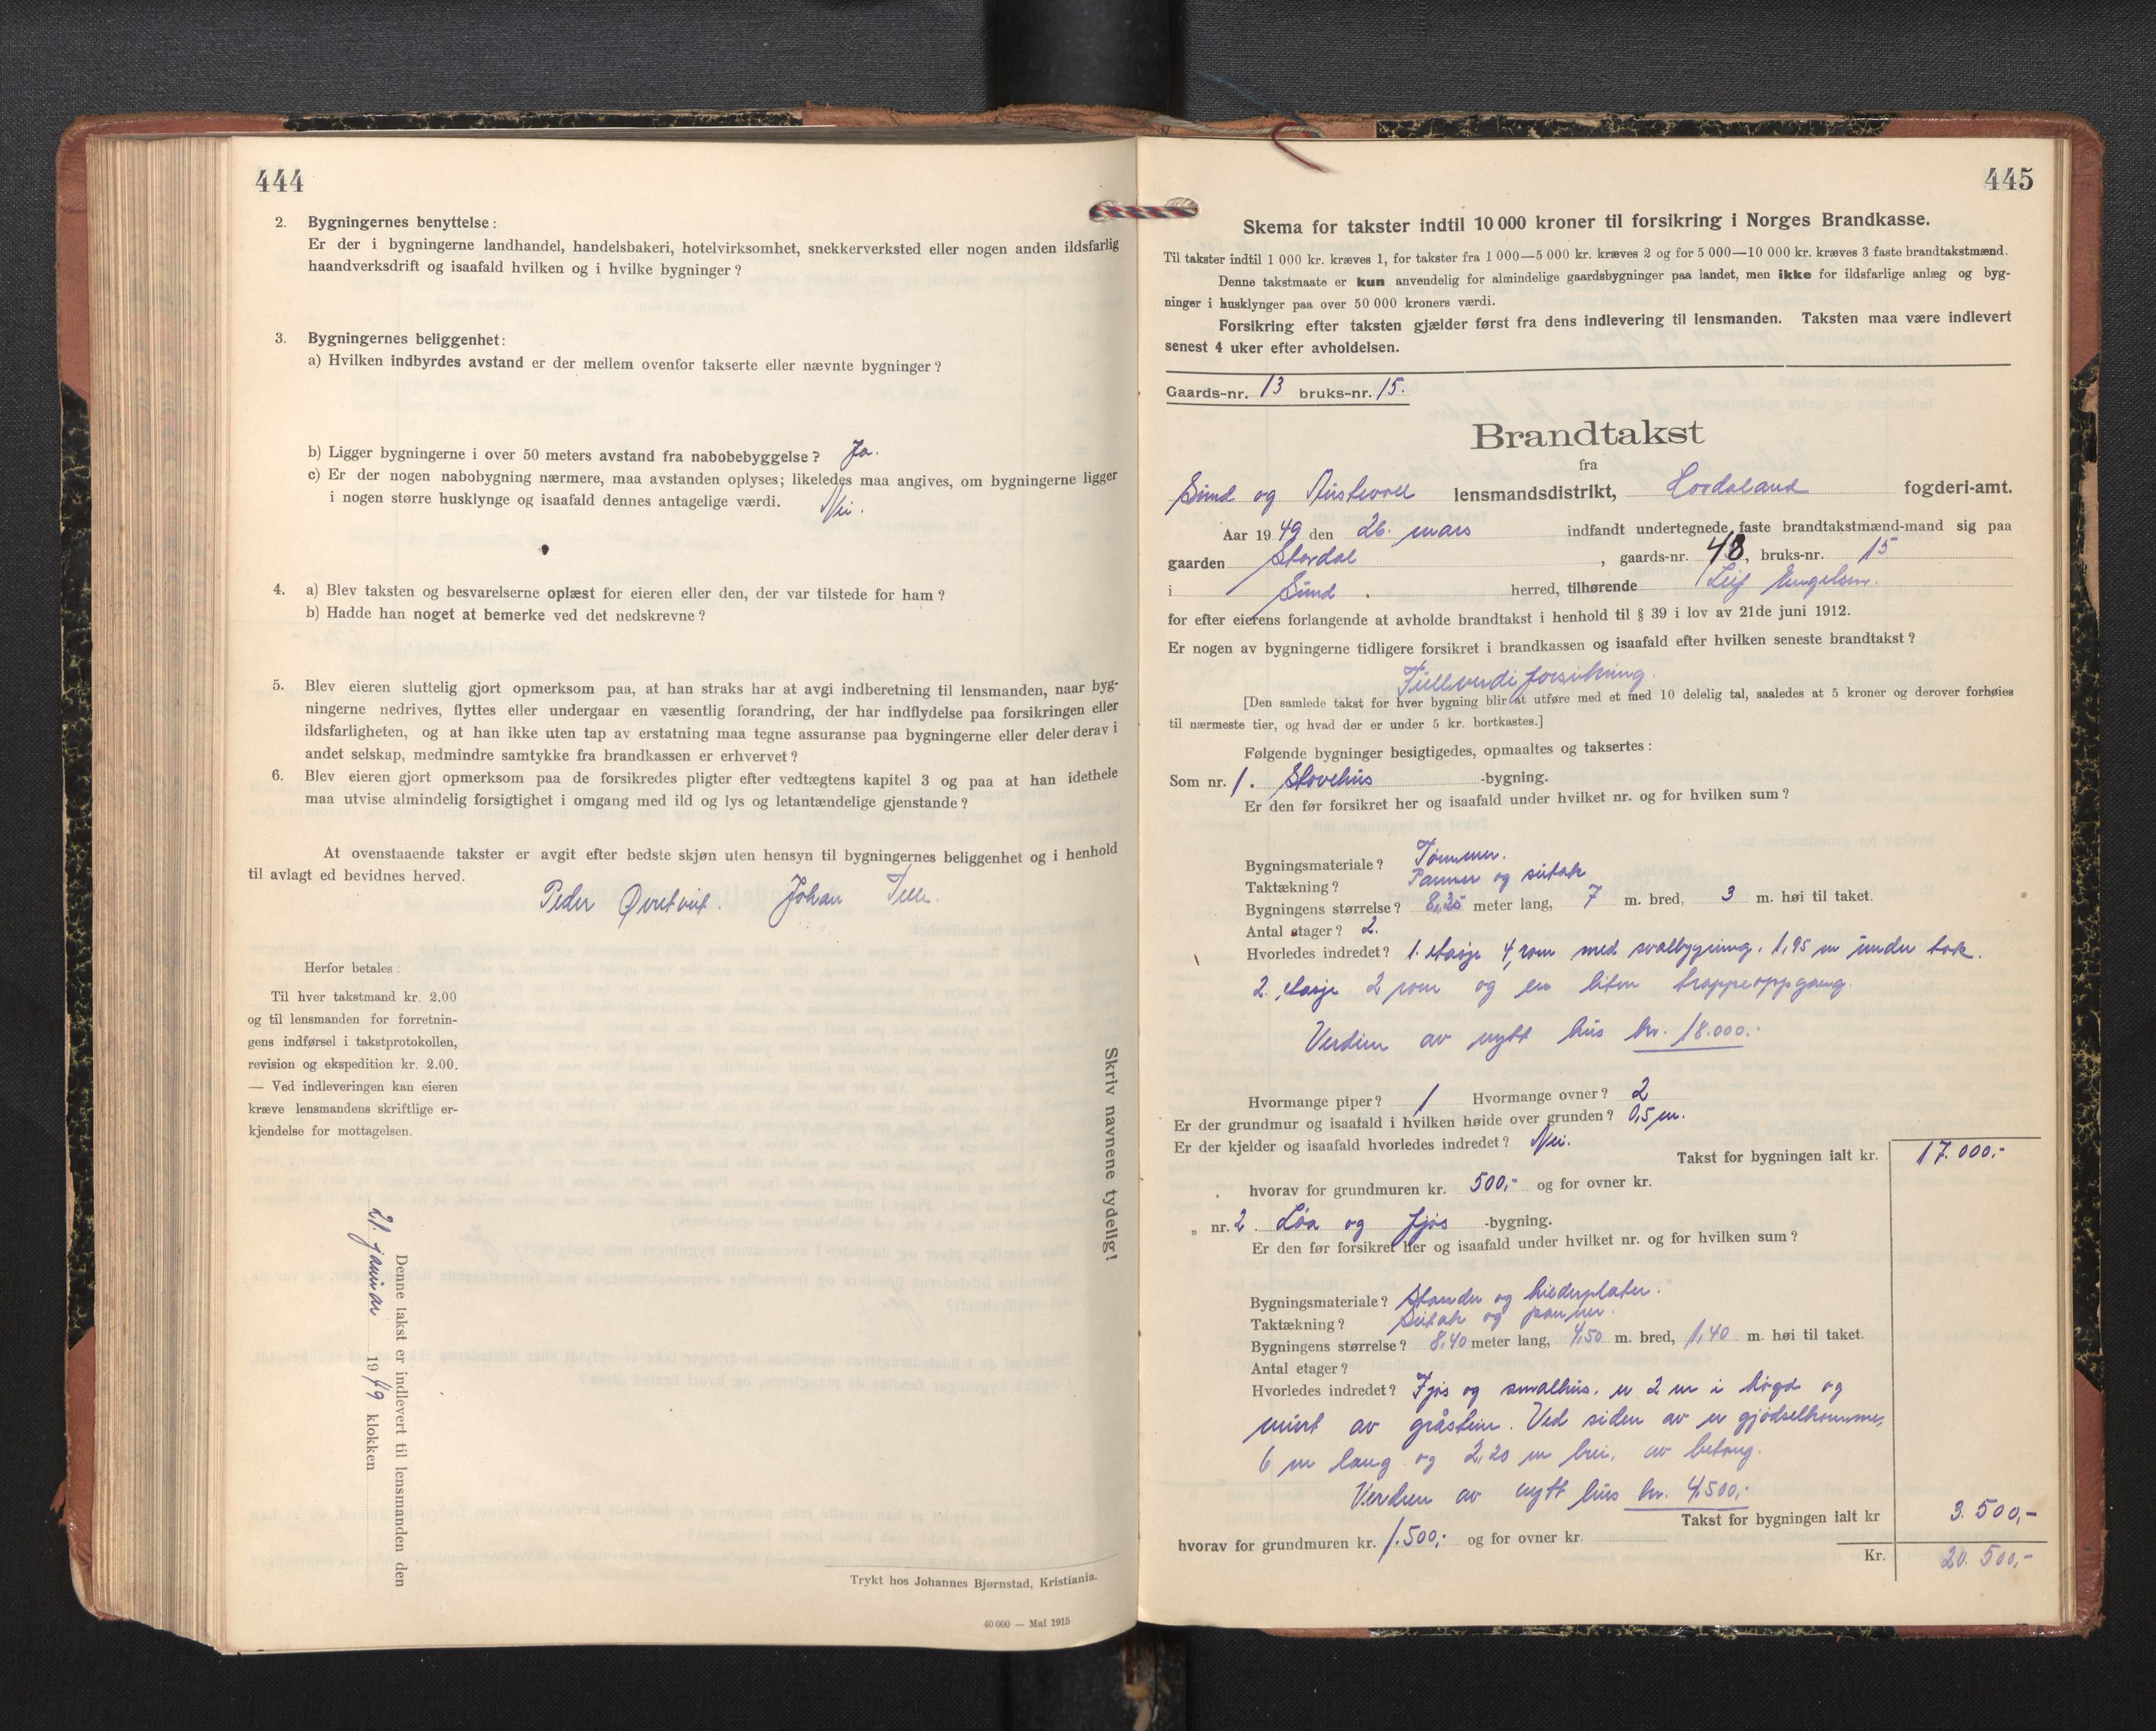 444
2. Bygningernes benyttelse:
Er der i bygningerne landhandel, handelsbakeri, hotelvirksomhet, snekkerverksted eller nogen anden ildsfarlig
haandverksdrift og isaafald hvilken og i hvilke bygninger?
3. Bygningernes beliggenhet:
a) Hvilken indbyrdes avstand er der mellem ovenfor takserte eller nævnte bygninger?
b) Ligger bygningerne i over 50 meters avstand fra nabobebyggelse? Ja.
c) Er der nogen nabobygning nærmere, maa avstanden oplyses; likeledes maa angives, om bygningerne ligger
i nogen større husklynge og isaafald dennes antagelige værdi. Nei.
4. a) Blev taksten og besvarelserne oplæst for eieren eller den, der var tilstede for ham?
b) Hadde han noget at bemerke ved det nedskrevne?
5. Blev eieren sluttelig gjort opmerksom paa, at han straks har at avgi indberetning til lensmanden, naar byg-
ningerne nedrives, flyttes eller undergaar en væsentlig forandring, der har indflydelse paa forsikringen eller
ildsfarligheten, og at han ikke uten tap av erstatning maa tegne assuranse paa bygningerne eller deler derav i
andet selskap, medmindre samtykke fra brandkassen er erhvervet?
6. Blev eieren gjort opmerksom paa de forsikredes pligter efter vedtægtens kapitel 3 og paa at han idethele
maa utvise almindelig forsigtighet i omgang med ild og lys og letantændelige gjenstande?
At ovenstaaende takster er avgit efter bedste skjøn uten hensyn til bygningernes beliggenhet og i henhold
til avlagt ed bevidnes herved.
Peder Øvretveit. Johan
Herfor betales:
Til hver takstmand kr. 2.00
og til lensmanden for forretnin-
gens indførsel i takstprotokollen,
revision og ekspedition kr. 2.00.
— Ved indleveringen kan eieren
kræve lensmandens skriftlige er-
kjendelse for mottagelsen.
Skriv navnene tydelig!
Denne takst er indlevert til lensmanden den
21. januar 1949 klokken
Trykt hos Johannes Bjørnstad, Kristiania.
40 000 — Mai 1915
445
Skema for takster indtil 10 000 kroner til forsikring i Norges Brandkasse.
Til takster indtil 1 000 kr. kræves 1, for takster fra 1 000—5 000 kr. kræves 2 og for 5 000—10 000 kr. kræves 3 faste brandtakstmænd.
Denne takstmaate er kun anvendelig for almindelige gaardsbygninger paa landet, men ikke for ildsfarlige anlæg og byg-
ninger i husklynger paa over 50 000 kroners værdi.
Forsikring efter taksten gjælder først fra dens indlevering til lensmanden. Taksten maa være indlevert
senest 4 uker efter avholdelsen.
Gaards-nr. 13 bruks-nr. 15.
Brandtakst
fra
Sund og Austevoll lensmandsdistrikt, Hordaland fogderi-amt.
Aar 1949 den 26. mars indfandt undertegnede faste brandtakstmænd-mand sig paa
gaarden Stordal, gaards-nr. 48, bruks-nr. 15
i Sund herred, tilhørende Leif Engelsen.
for efter eierens forlangende at avholde brandtakst i henhold til § 39 i lov av 21de juni 1912.
Er nogen av bygningerne tidligere forsikret i brandkassen og isaafald efter hvilken seneste brandtakst?
Fullverdiforsikring.
[Den samlede takst for hver bygning blir at utføre med et med 10 delelig tal, saaledes at 5 kroner og derover forhøies
til nærmeste tier, og hvad der er under 5 kr. bortkastes.]
Følgende bygninger besigtigedes, opmaaltes og taksertes:
Som nr. 1. Stovehus -bygning.
Er den før forsikret her og isaafald under hvilket nr. og for hvilken sum?
Bygningsmateriale? Tømmer.
Taktækning? Panner og sutak
Bygningens størrelse? 8,35 meter lang, 7 m. bred, 3 m. høi til taket.
Antal etager? 2.
Hvorledes indredet? 1. etasje 4 rom med svalbygning. 1,95 m under tak.
2. etasje 2 rom og en liten trappeoppgang.
Verdien av nytt hus kr. 18.000.-
Hvormange piper? 1 Hvormange ovner? 2
Er der grundmur og isaafald i hvilken høide over grunden? 0,5 m.
Er der kjelder og isaafald hvorledes indredet? Nei.
Takst for bygningen ialt kr. 17.000.-
hvorav for grundmuren kr. 500,- og for ovner kr.
„ nr. 2. Løa og fjøs -bygning.
Er den før forsikret her og isaafald under hvilket nr. og for hvilken sum?
Bygningsmateriale? Stender og
Taktækning? Sutak og panner.
Bygningens størrelse? 8,40 meter lang, 4,50 m. bred, 1,40 m. høi til taket.
Antal etager?
Hvorledes indredet? Fjøs og smalhus, er 2 m i høgd og
murt av gråstein. Ved siden av er gjødselkomme,
6 m lang og 2,20 m brei, av betong.
Verdien av nytt hus kr. 4.500,-
Takst for bygningen ialt kr 3.500,-
hvorav for grundmuren kr. 1.500,- og for ovner kr.
Kr. 20.500,-